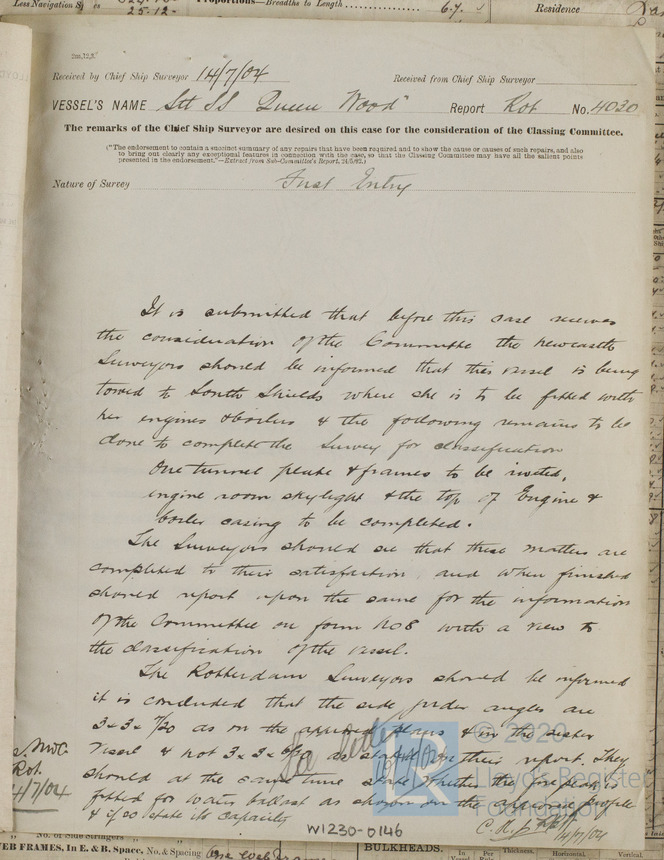 Less Navigation
25.12
Proportions—Breadths to Length
6.7
Residence
2m,12,3.
Received by Chief Ship Surveyor 14/7/04 Received from Chief Ship Surveyor
VESSEL'S NAME Stl SS "Queen Wood" Report Rot No. 4030
The remarks of the Chief Ship Surveyor are desired on this case for the consideration of the Classing Committee.
("The endorsement to contain a succinct summary of any repairs that have been required and to show the cause or causes of such repairs, and also
to bring out clearly any exceptional features in connection with the case, so that the Classing Committee may have all the salient points
presented in the endorsement."—Extract from Sub-Committee's Report, 24/5/92.)
Nature of Survey First Entry
It is submitted that before this case receives
the consideration of the Committee the Newcastle
Surveyors should be informed that this vessel is being
towed to South Shields where she is to be fitted with
her engines & boilers & the following remains to be
done to complete the Survey for classification
One tunnel plate & frames to be riveted,
engine room skylight & the top of Engine &
boiler casing to be completed.
The Surveyors should see that these matters are
completed to their satisfaction, and when finished
should report upon the same for the information
of the Committee on form No 8 with a view to
the classification of the vessel.
The Rotterdam Surveyors should be informed
it is concluded that the side girder angles are
3 x 3 x 7/20 as on the approved plans & in the sister
vessel & not 3 x 3 x 6/20 as stated in their report. They
should at the same time state whether the fore peak is
fitted for water ballast as shown on the approved profile
& if so state its capacity
Rot.
4/7/04
© 2020
Lloyd's Register
Foundation
W1230-0146
No. of Side Stringers
WEB FRAMES, In E. & B. Space, No. & Spacing
BULKHEADS.
In
Per
Thickness.
Horizontal.
Vertical.